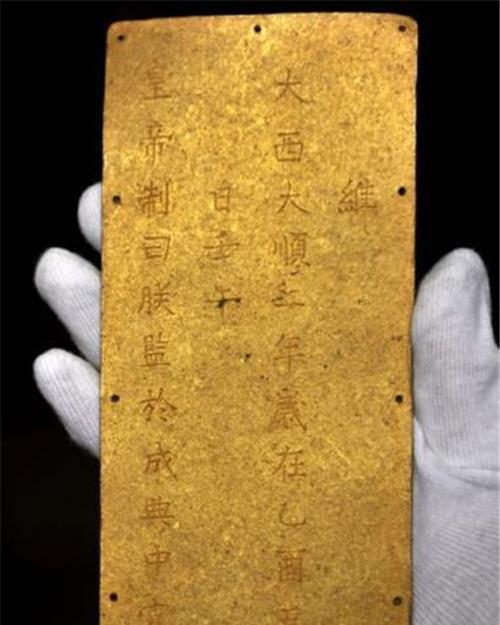 維
大西大順二年歲在乙酉五
日壬午
皇帝制曰朕監於成典中